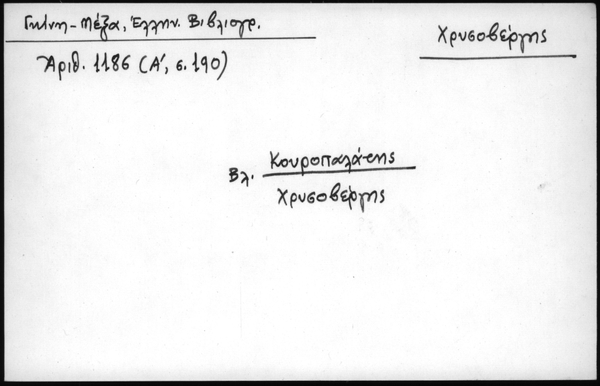 Γκίνη-Μέξα, Ἑλλην. Βιβλιογρ.
Χρυσοβέργης
Ἀριθ. 1186 (Α΄, σ. 190)
Βλ. Κουροπαλάτης
Χρυσοβέργης